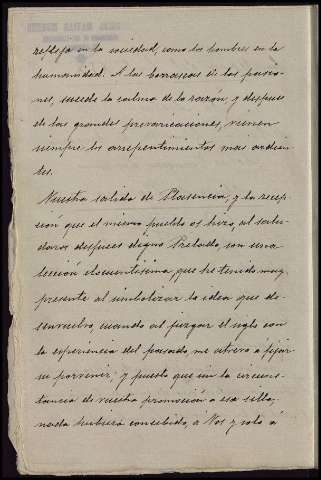 refleja en la sociedad, como los hombres en la
humanidad. A las borrascas de las pasio-
nes, sucede la calma de la razón, y despues
de las grandes prevaricaciones, vienen
siempre los arrepentimientos mas ardien-
tes.
Nuestra salida de Plasencia, y la recep-
ción que el mismo pueblo os hizo, al salu-
daros despues digno Prelado, son una
lección elocuentísima que he tenido muy
presente al simbolizar la idea que de-
senvuelvo, cuando al juzgar el siglo con
la experiencia del pasado me atrevo a fijar
su porvenir; y puesto que sin la circuns-
tancia de vuestra promoción a esa silla,
nada hubiera concebido, á Vos y solo á